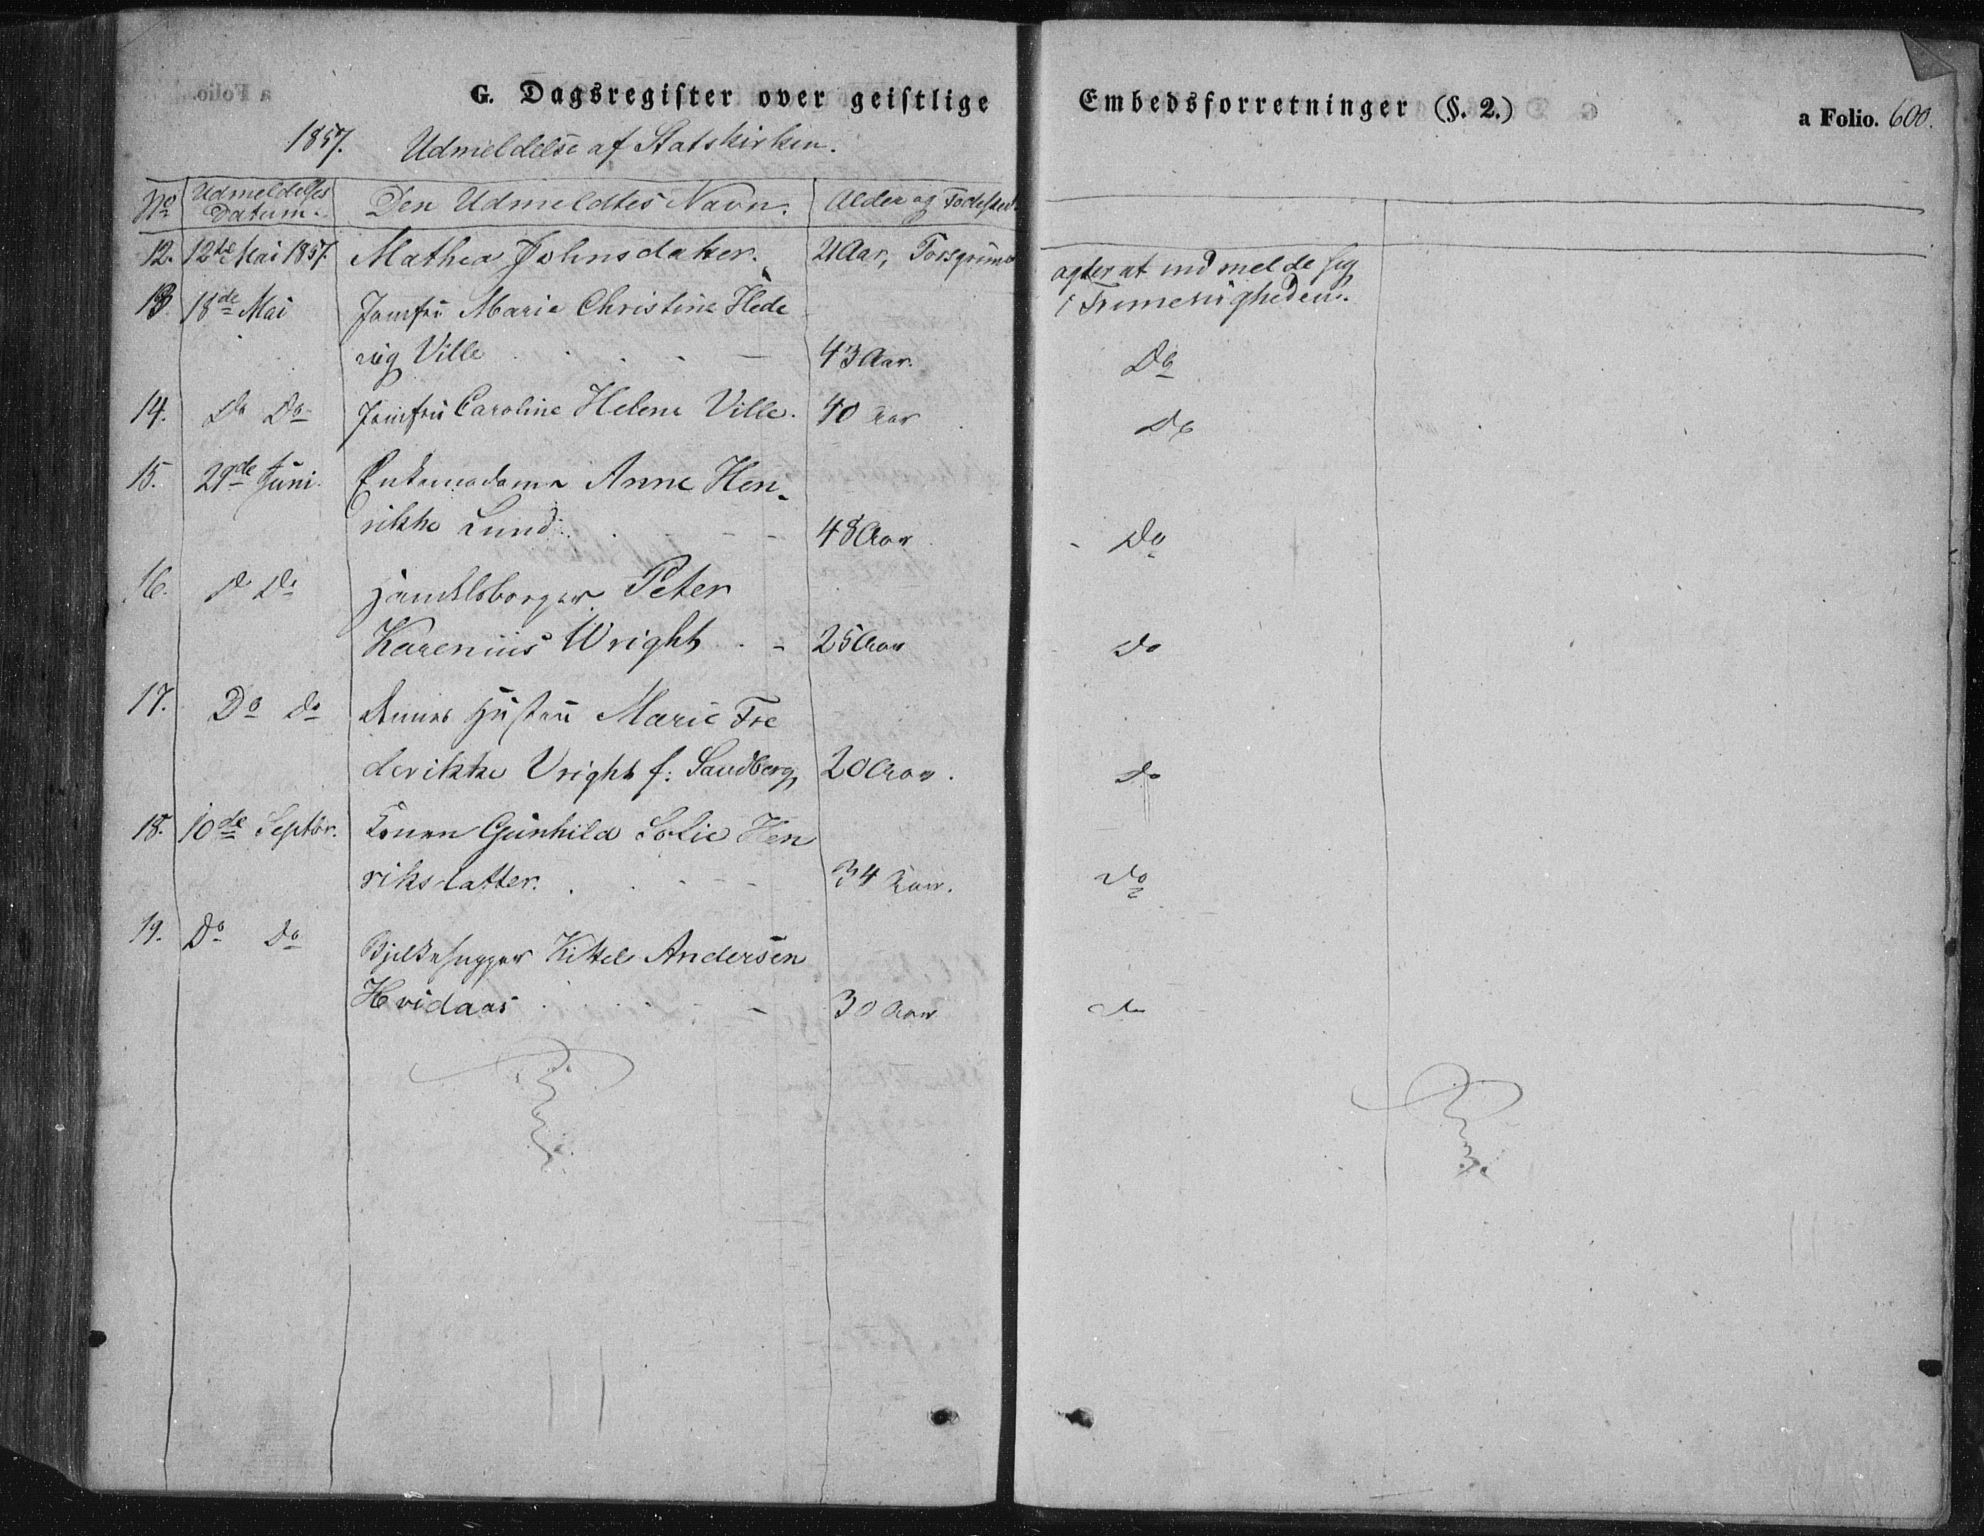 G. Dagsregister over geistlige Embedsforretninger (§. 2.) a Folio. 600.
1857. Udmeldelse af Statskirken.
No Udmeldelses Datum. Den Udmeldtes Navn. Alder og Fødested.
12. 12te Mai 1857. Mathea Johnsdaker. 21 Aar, Porsgrund agter at indmelde sig
i Frimenigheden.
13 18de Mai Jomfru Marie Christine Hede
vig Ville 43 Aar. Do
14. Do Do Jomfru Caroline Helene Ville. 40 Aar Do
15. 29de Juni Enkemadame Anne Hen-
rikke Lund 48 Aar Do
16. Do Do Handelsborger Peter
Karenius Wright 25 Aar Do
17. Do do Dennes Hustru Marie Fre
derikke Vright f: Sandberg 20 Aar. Do
18. 10de Septbr. Konen Gunhild Sofie Hen
riksdatter. 34 Aar. Do
19. Do Do Bjelkehugger Kittel Andersen
Hvidaas 30 Aar do